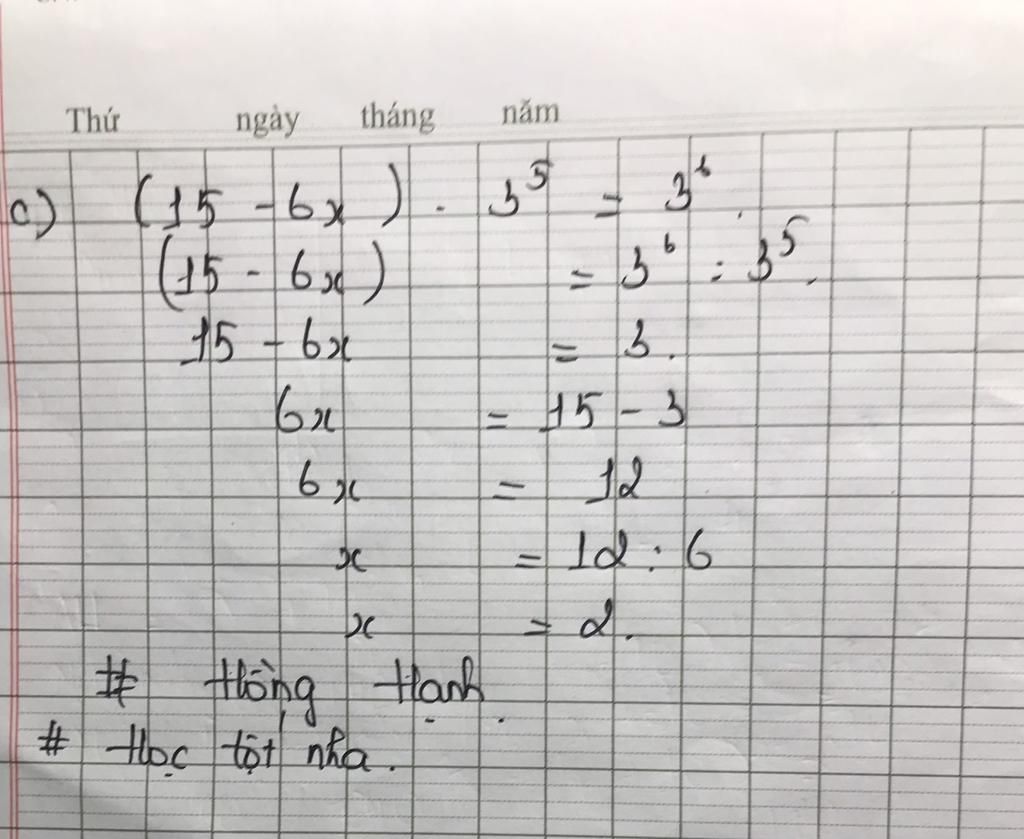 Thứ ngày tháng năm
c) (15 - 6x) . 3⁵ = 3⁶.
(15 - 6x) = 3⁶ : 3⁵.
15 - 6x = 3.
6x = 15 - 3
6x = 12
x = 12 : 6
x = 2.
# Hồng Hạnh.
# Học tốt nha.